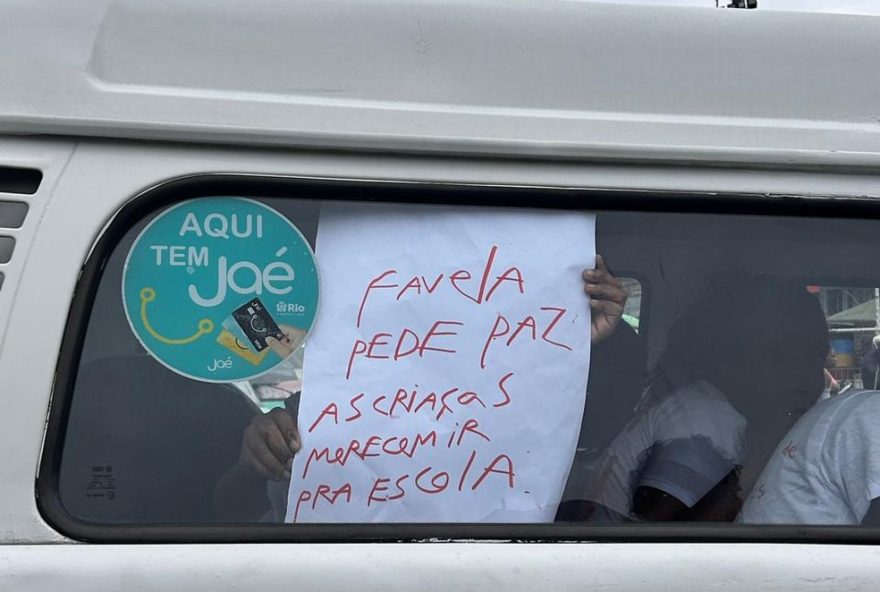 AQUI
TEM Jaé
Rio
PREFEITURA
Jaé
FAVELA
PEDE PAZ
AS CRIAÇAS
MERECEM IR
PRA ESCOLA